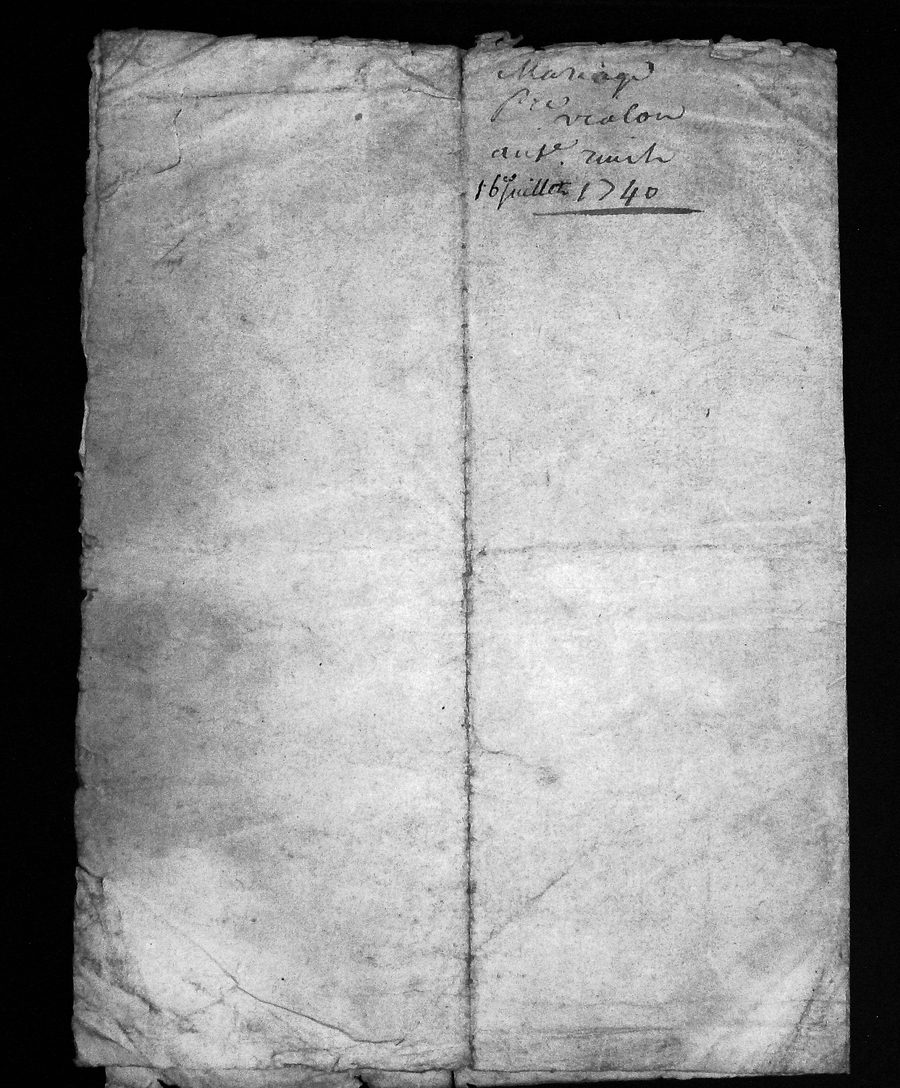 Mariage
pre vialon
ant.e
16 juillet 1740